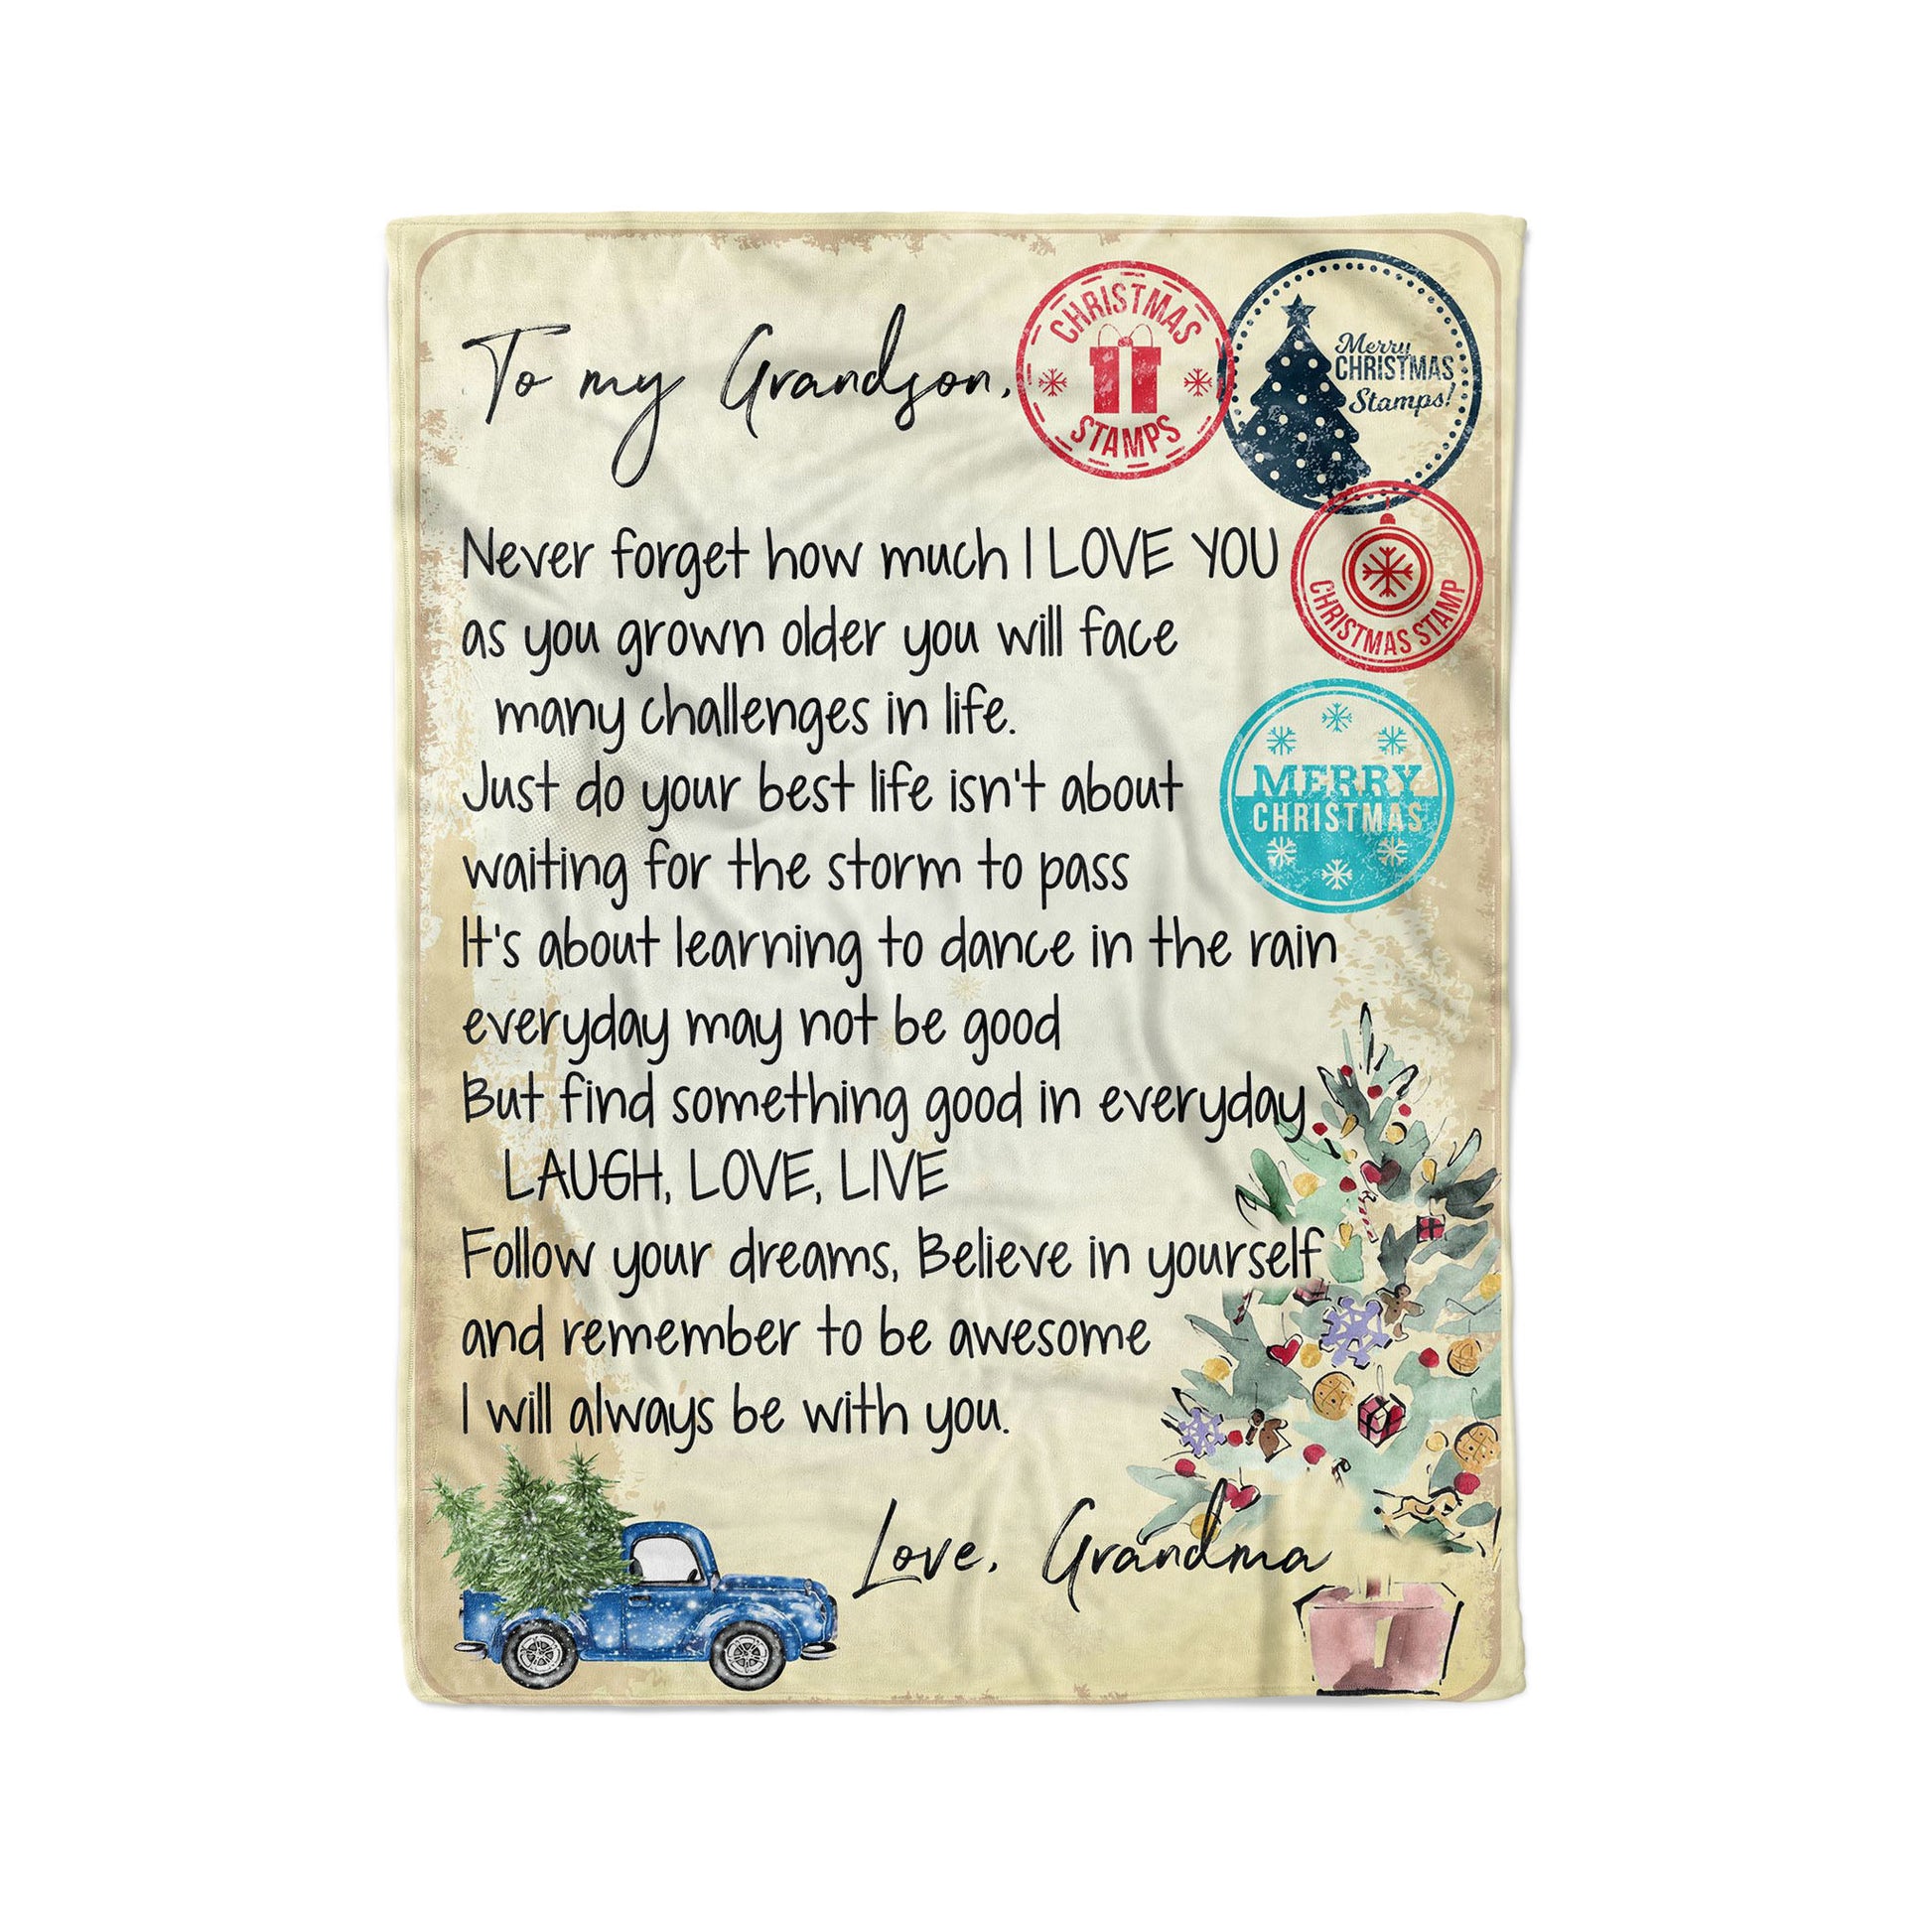 To my Grandson,
CHRISTMAS
STAMPS
Merry
CHRISTMAS
Stamps!
Never forget how much I LOVE YOU
CHRISTMAS STAMP
as you grown older you will face
many challenges in life.
MERRY
CHRISTMAS
Just do your best life isn't about
waiting for the storm to pass
It's about learning to dance in the rain
everyday may not be good
But find something good in everyday
LAUGH, LOVE, LIVE
Follow your dreams, Believe in yourself
and remember to be awesome
I will always be with you.
Love, Grandma